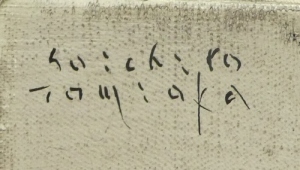 soichiro
Tomioka